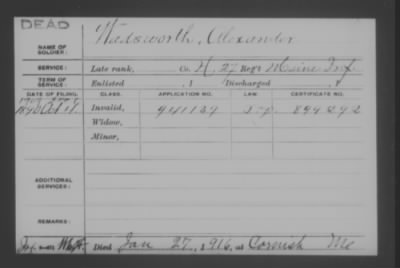 DEAD
NAME OF SOLDIER: Wadsworth, Alexander
SERVICE: Late rank, Co. H, 27 Reg't Maine Inf.
TERM OF SERVICE: Enlisted , 1 Discharged , 1
DATE OF FILING. CLASS. APPLICATION NO. LAW. CERTIFICATE NO.
Oct 9. Invalid, 941134 894292
Widow,
Minor,
ADDITIONAL SERVICES:
REMARKS:
Died Jan 27, 1916, at Cornish Me